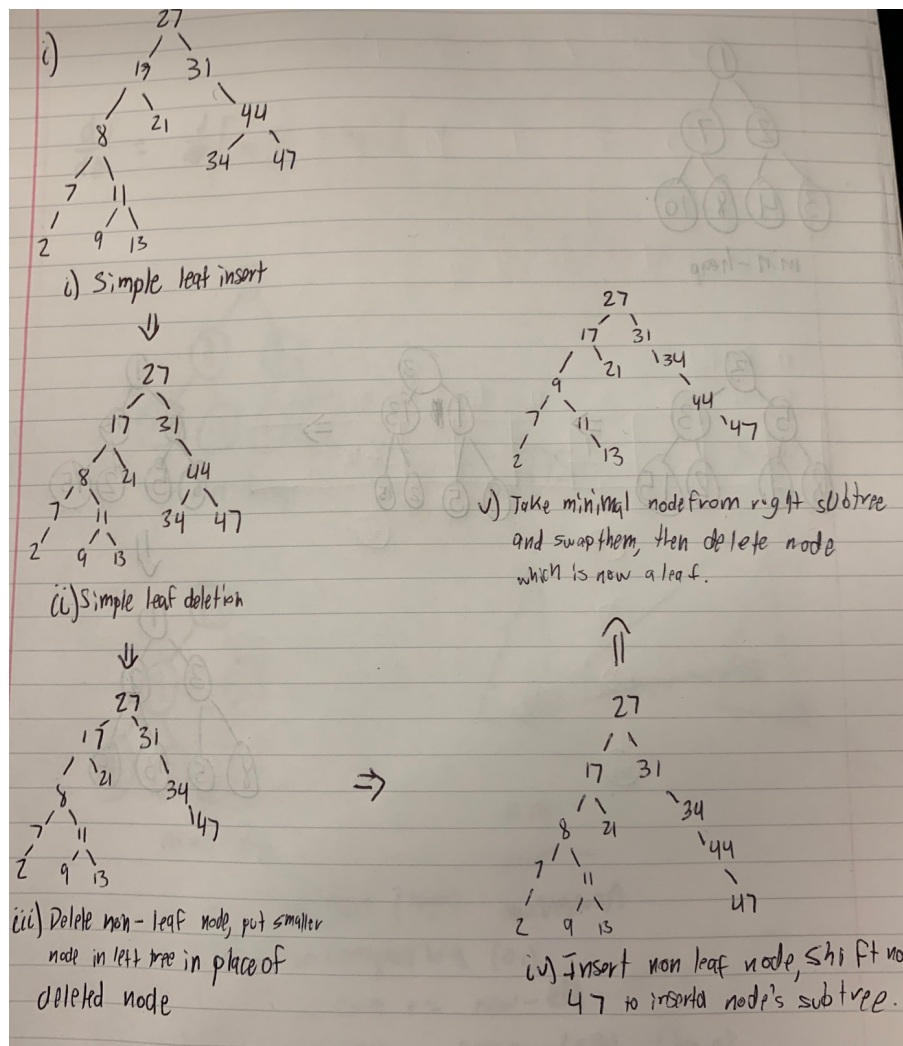 27
i)
17 31
8 21 44
34 47
7 11
2 9 13
i) Simple leaf insert
⇓
27
17 31
8 21 44
7 11 34 47
2 9 13
ii) Simple leaf deletion
⇓
27
17 31
8 21 34
7 11 47
2 9 13
iii) Delete non-leaf node, put smaller
node in left tree in place of
deleted node
⇒
27
17 31
8 21 34
7 11 44
2 9 13 47
iv) Insert non leaf node, shift no
47 to inserted node's subtree.
⇑
27
17 31
9 21 34
7 11 44
2 13 47
v) Take minimal node from right subtree
and swap them, then delete node
which is now a leaf.
min-heap